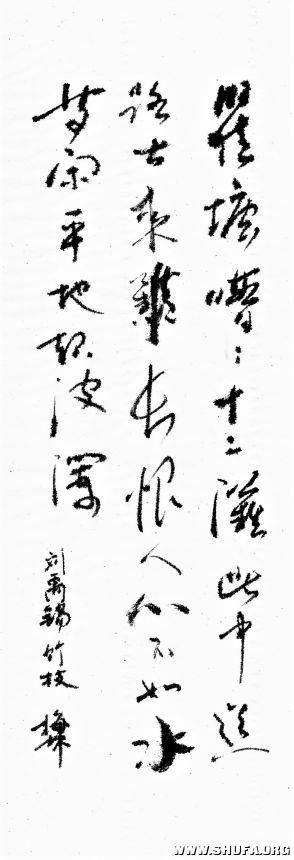 瞿塘嘈〻十二灘此中道
路古来難長恨人心不如水
等闲平地起波瀾
刘禹锡竹枝
WWW.SHUFA.ORG